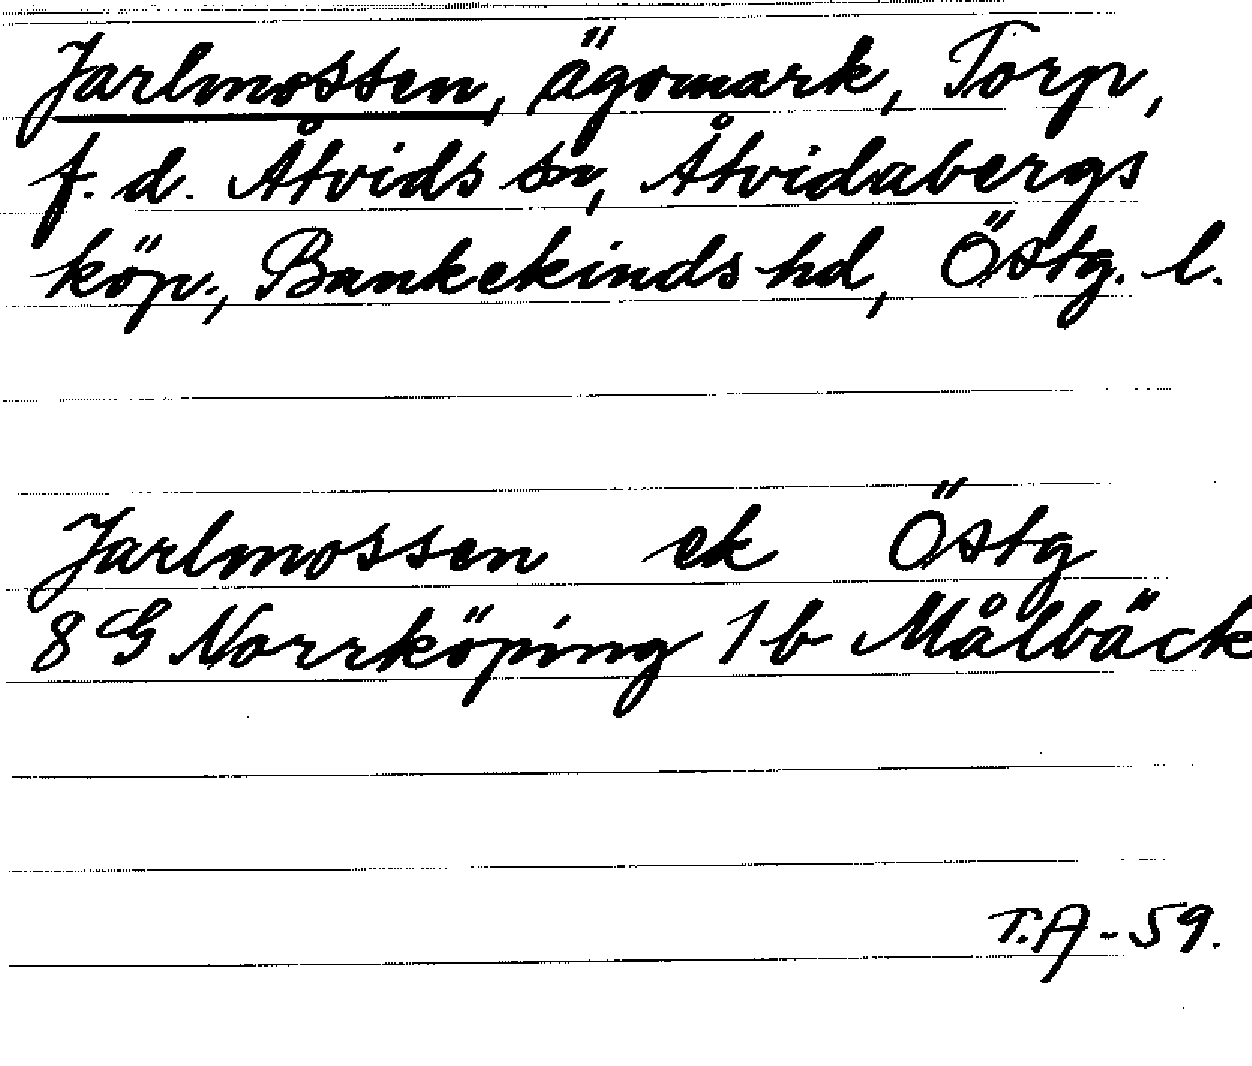 Jarlmossen, ägomark, Torp,
f. d. Åtvids sn, Åtvidabergs
köp., Bankekinds hd, Östg. l.
Jarlmossen ek Östg
8 G Norrköping 1 b Målbäck
T.A-59.